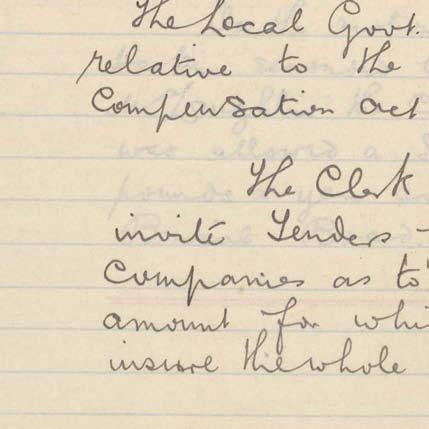 The Local Govt.
relative to the
Compensation Act
The Clerk
invite Tenders
Companies as to
amount for whi
insure the whole